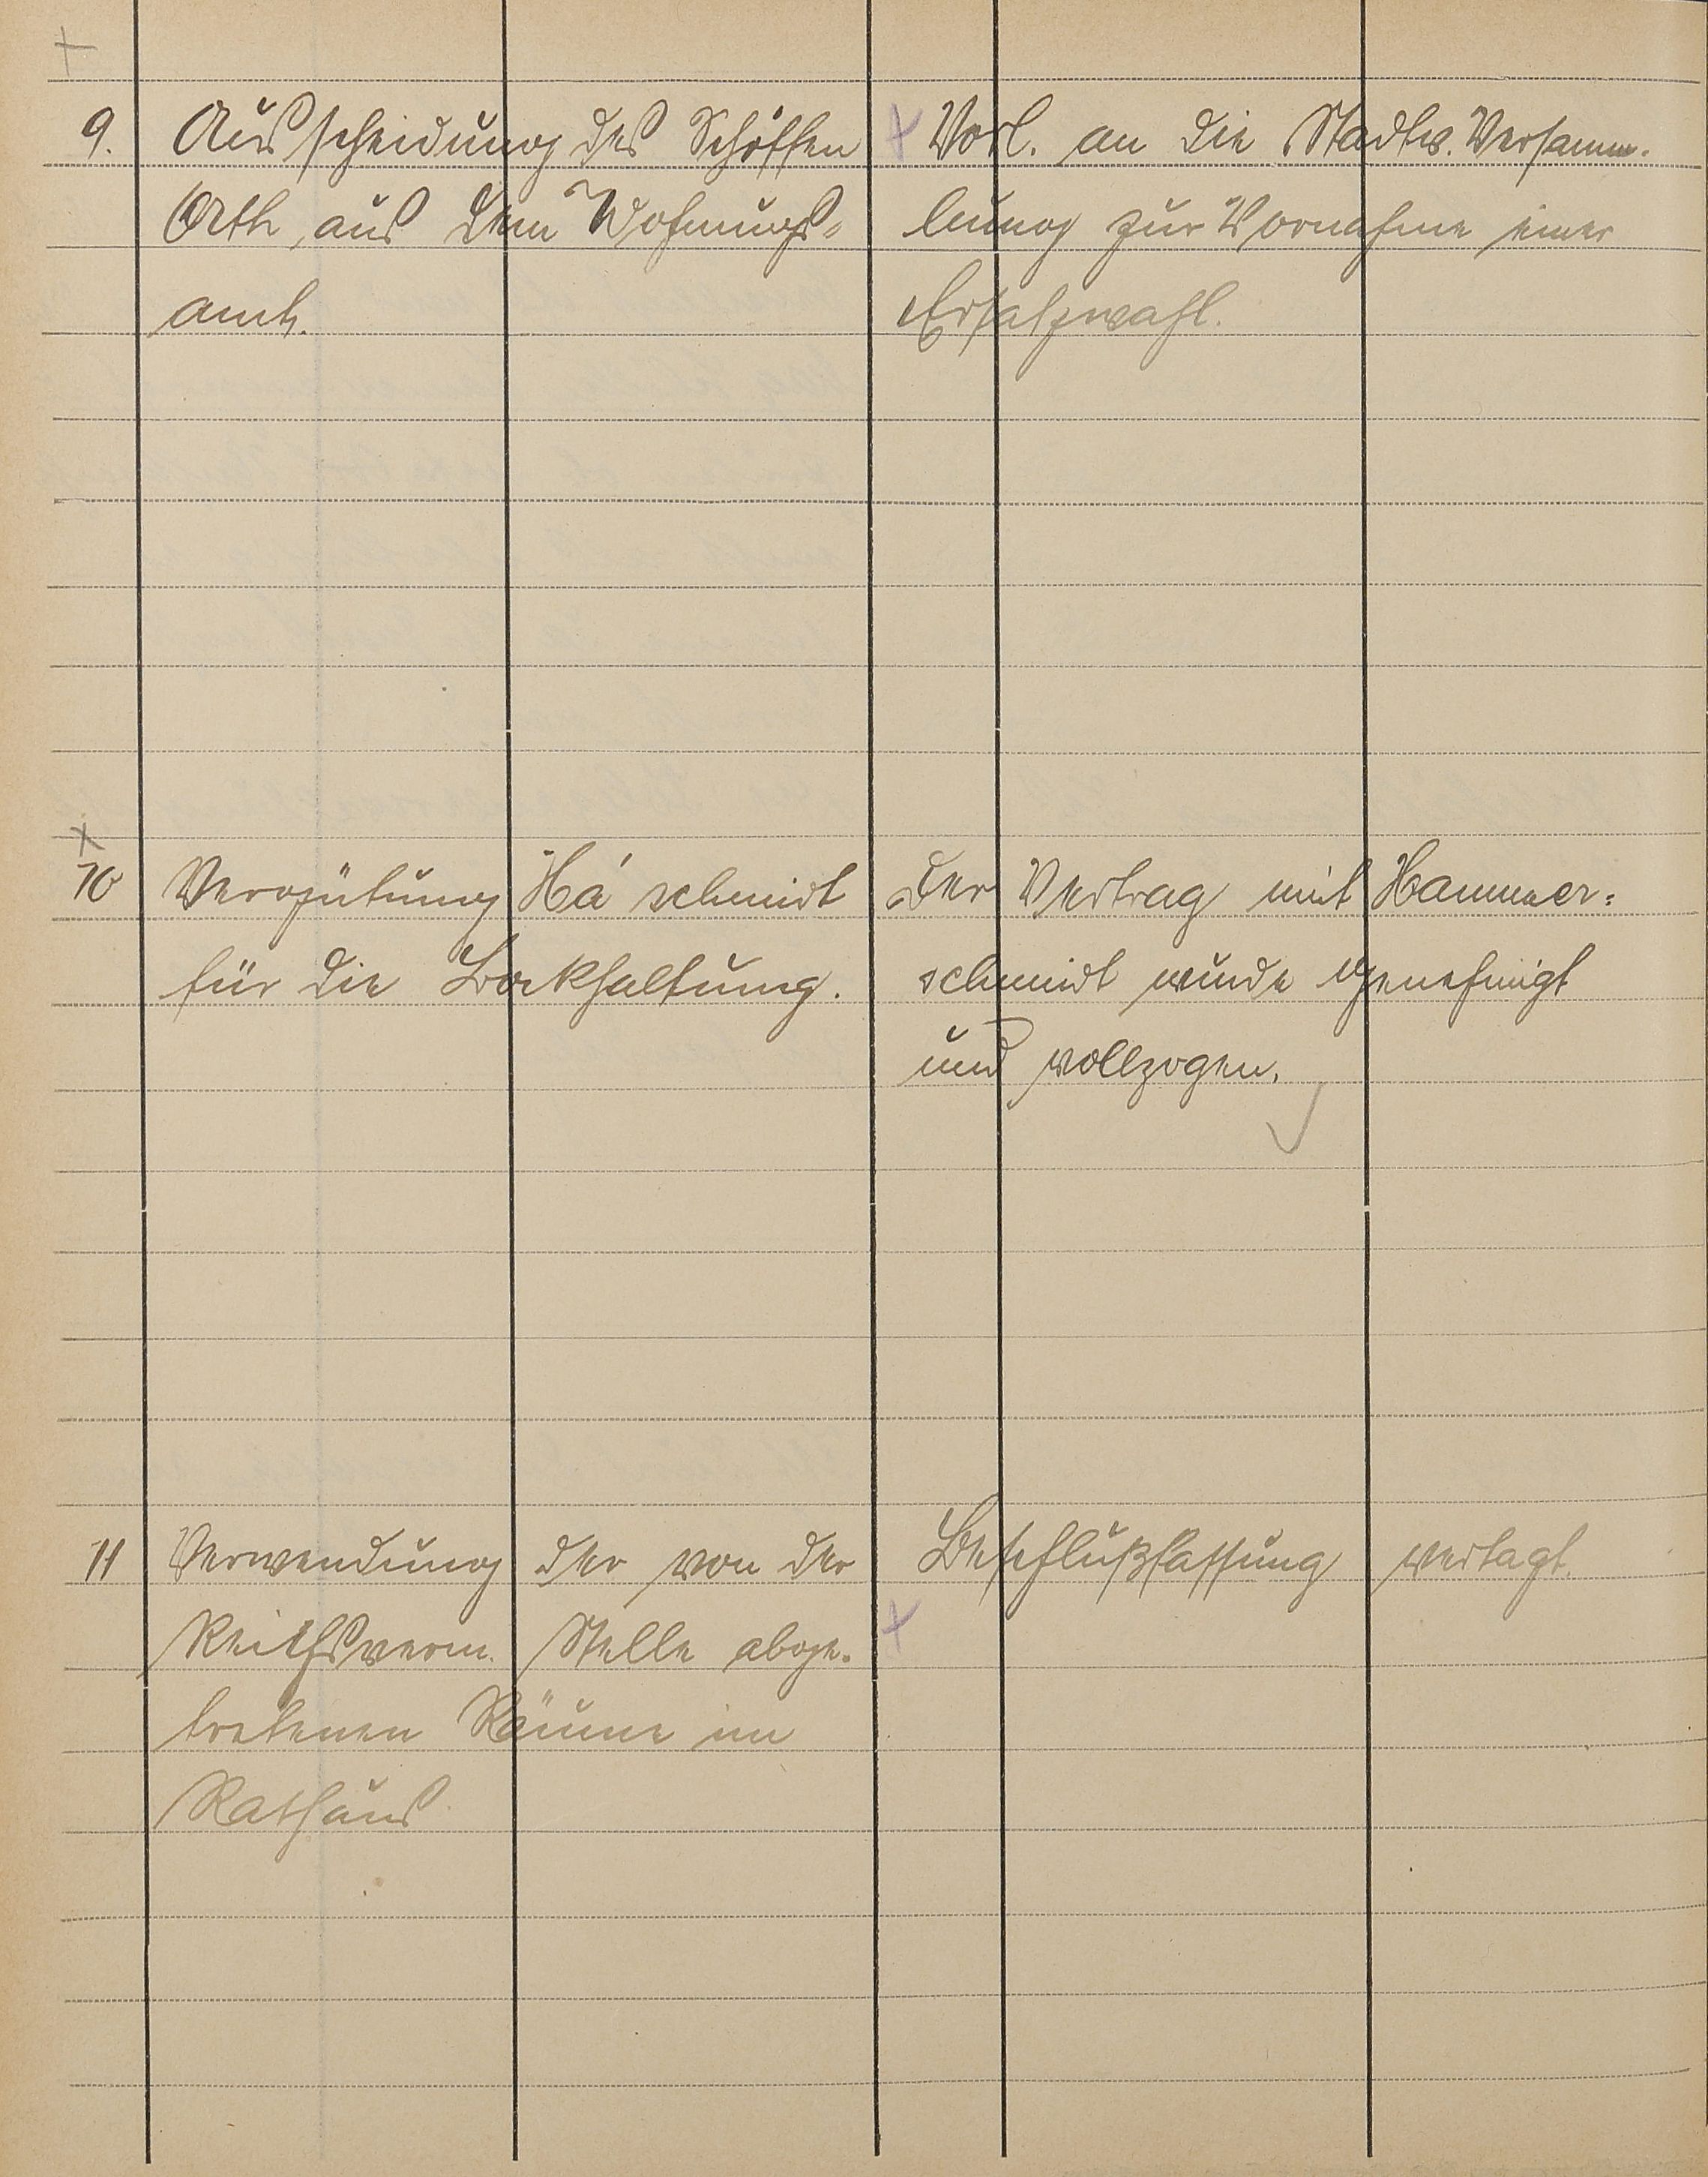 9. Ausscheidung des Schöffen
Orth, aus dem Wohnungs=
amt.
Vorl. an die Stadtv. Versamm-
lung zur Vornahme einer
Ersatzwahl.
10 Vergütung Ha'schmidt
für die Bockhaltung.
Der Vertrag mit Hammer=
schmidt wurde genehmigt
und vollzogen.
11 Verwendung der von der
Reichsverm. Stelle abge-
tretenen Räume im
Rathaus.
Beschlußfassung vertagt.